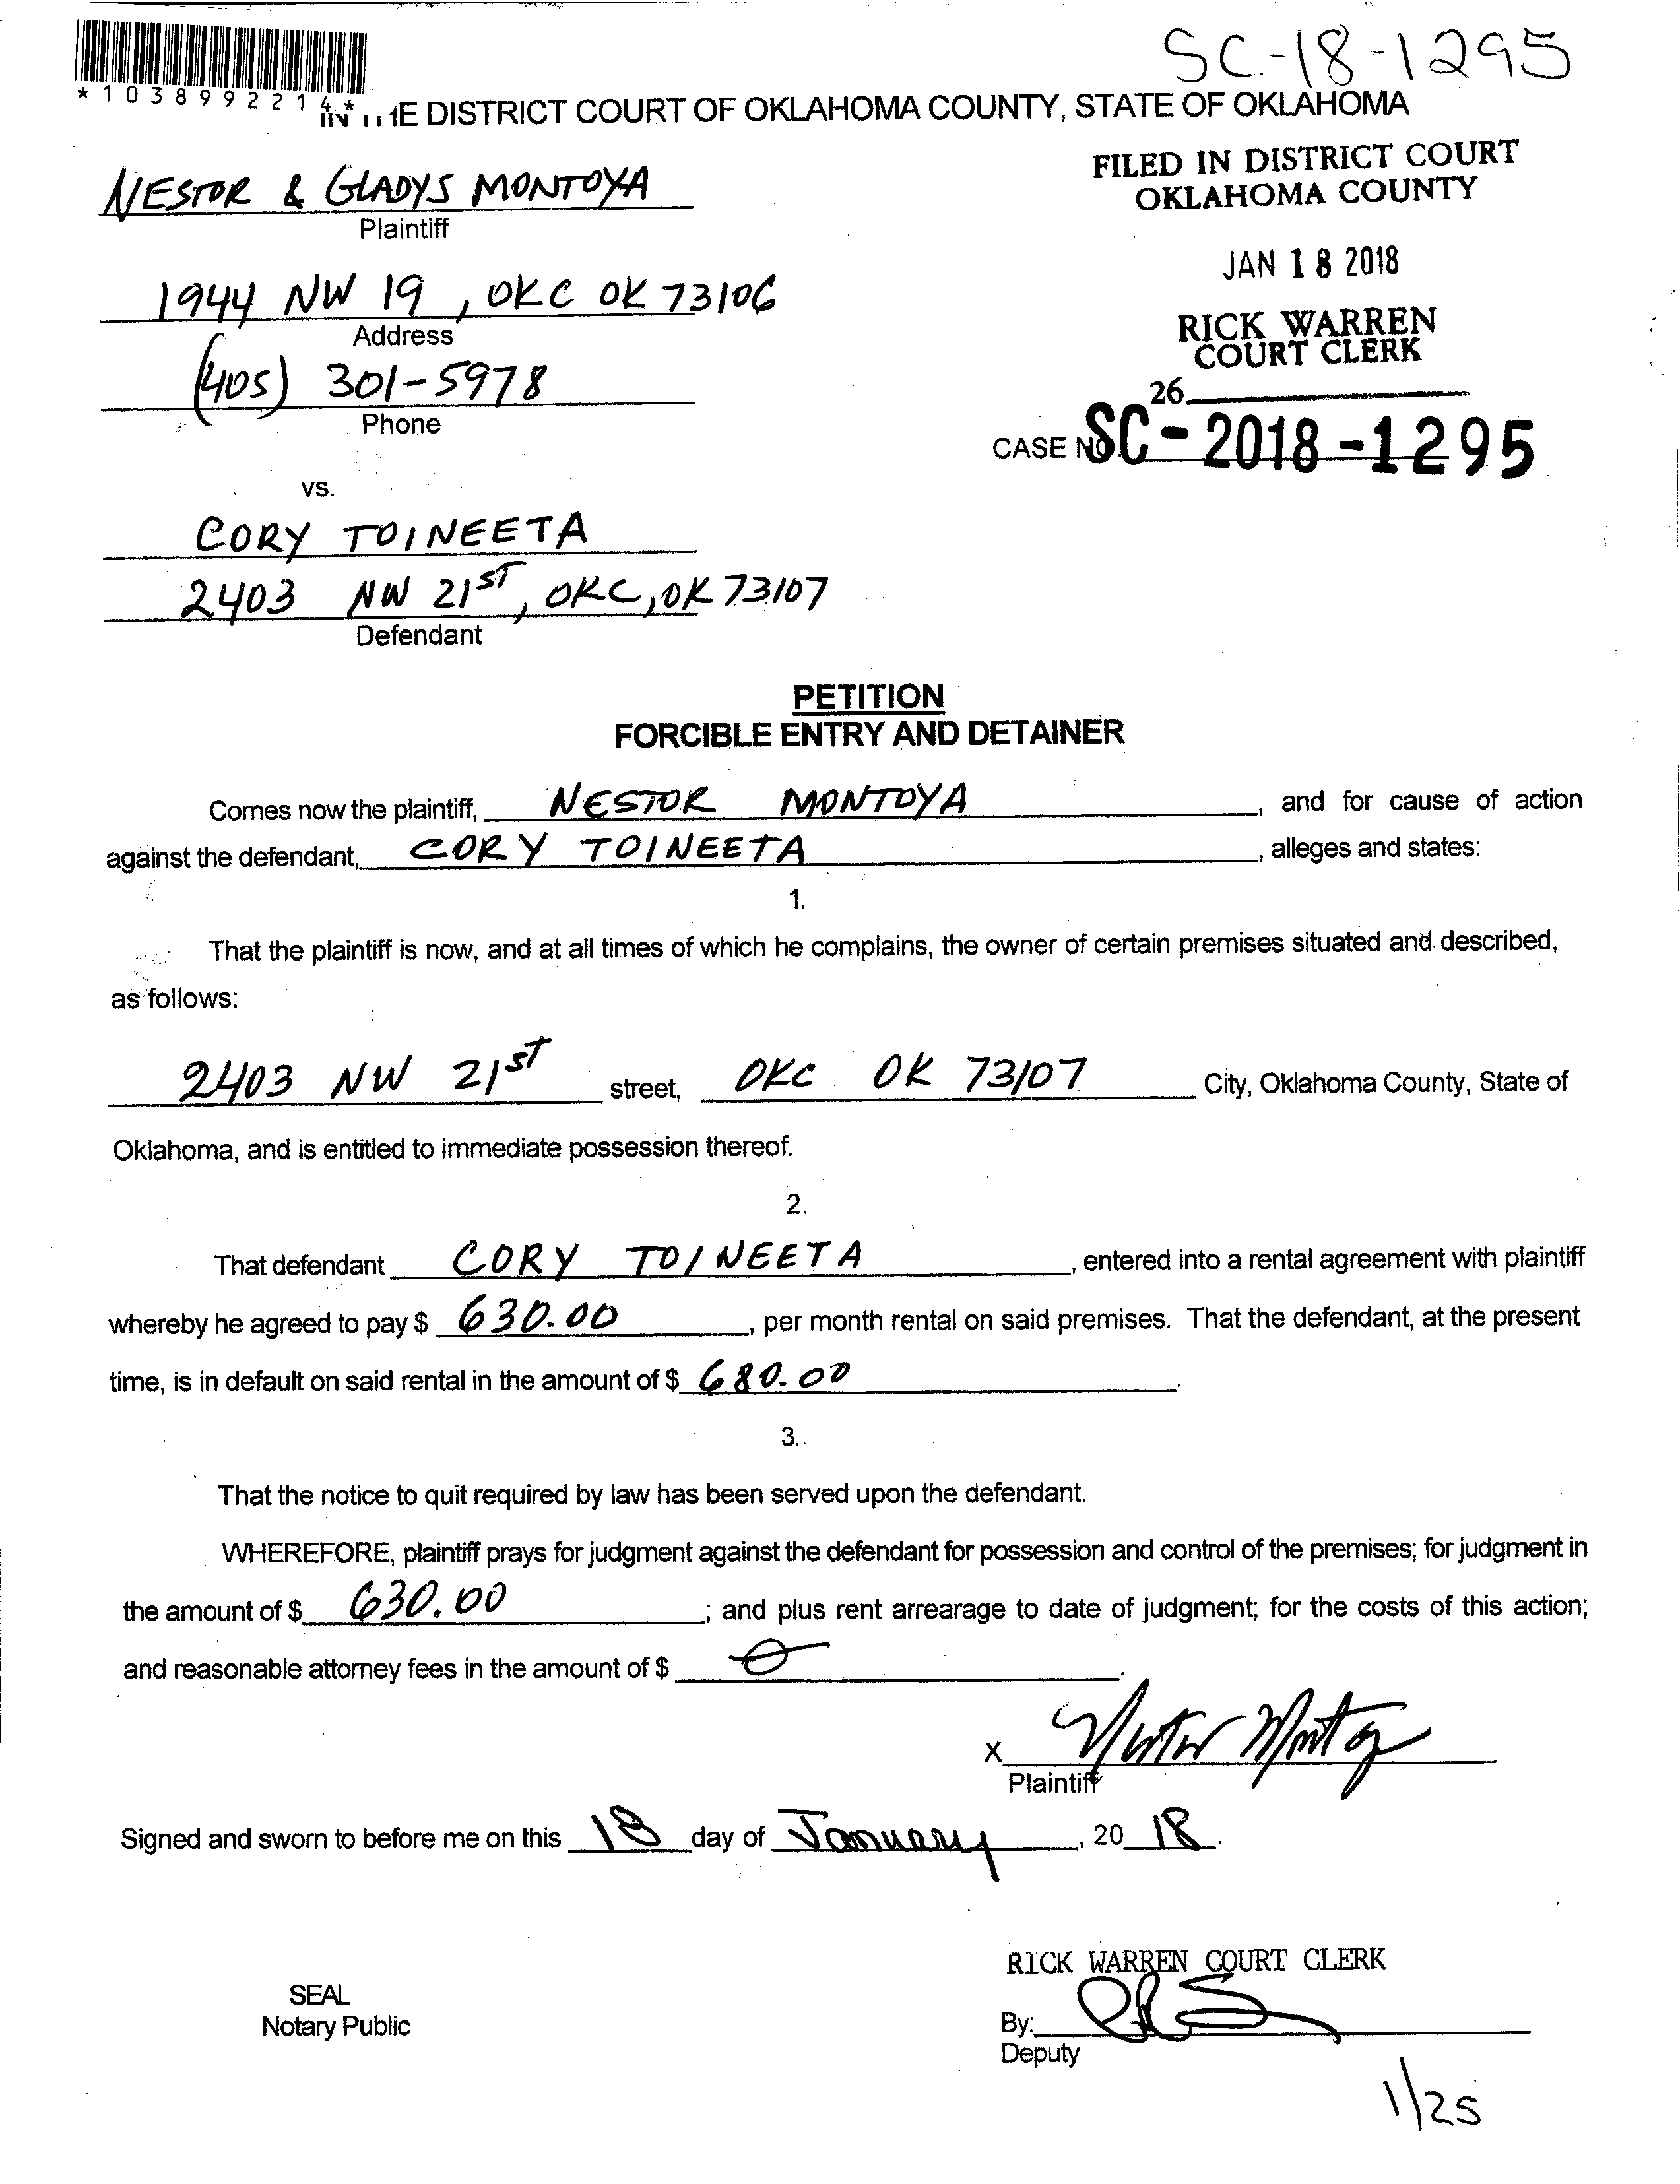 SC-18-1295
*1038992214*
IN THE DISTRICT COURT OF OKLAHOMA COUNTY, STATE OF OKLAHOMA
FILED IN DISTRICT COURT
OKLAHOMA COUNTY
JAN 18 2018
RICK WARREN
COURT CLERK
26
CASE NO. SC-2018-1295
NESTOR & GLADYS MONTOYA
Plaintiff
1944 NW 19, OKC OK 73106
Address
(405) 301-5978
Phone
vs.
CORY TOINEETA
2403 NW 21ST, OKC, OK 73107
Defendant
PETITION
FORCIBLE ENTRY AND DETAINER
Comes now the plaintiff, NESTOR MONTOYA, and for cause of action
against the defendant, CORY TOINEETA, alleges and states:
1.
That the plaintiff is now, and at all times of which he complains, the owner of certain premises situated and described,
as follows:
2403 NW 21ST street, OKC OK 73107 City, Oklahoma County, State of
Oklahoma, and is entitled to immediate possession thereof.
2.
That defendant CORY TOINEETA, entered into a rental agreement with plaintiff
whereby he agreed to pay $ 630.00, per month rental on said premises. That the defendant, at the present
time, is in default on said rental in the amount of $ 680.00.
3.
That the notice to quit required by law has been served upon the defendant.
WHEREFORE, plaintiff prays for judgment against the defendant for possession and control of the premises; for judgment in
the amount of $ 630.00; and plus rent arrearage to date of judgment; for the costs of this action;
and reasonable attorney fees in the amount of $ 0.
X Nestor Montoya
Plaintiff
Signed and sworn to before me on this 18 day of January, 2018.
RICK WARREN COURT CLERK
SEAL
Notary Public
By:
Deputy
1/25